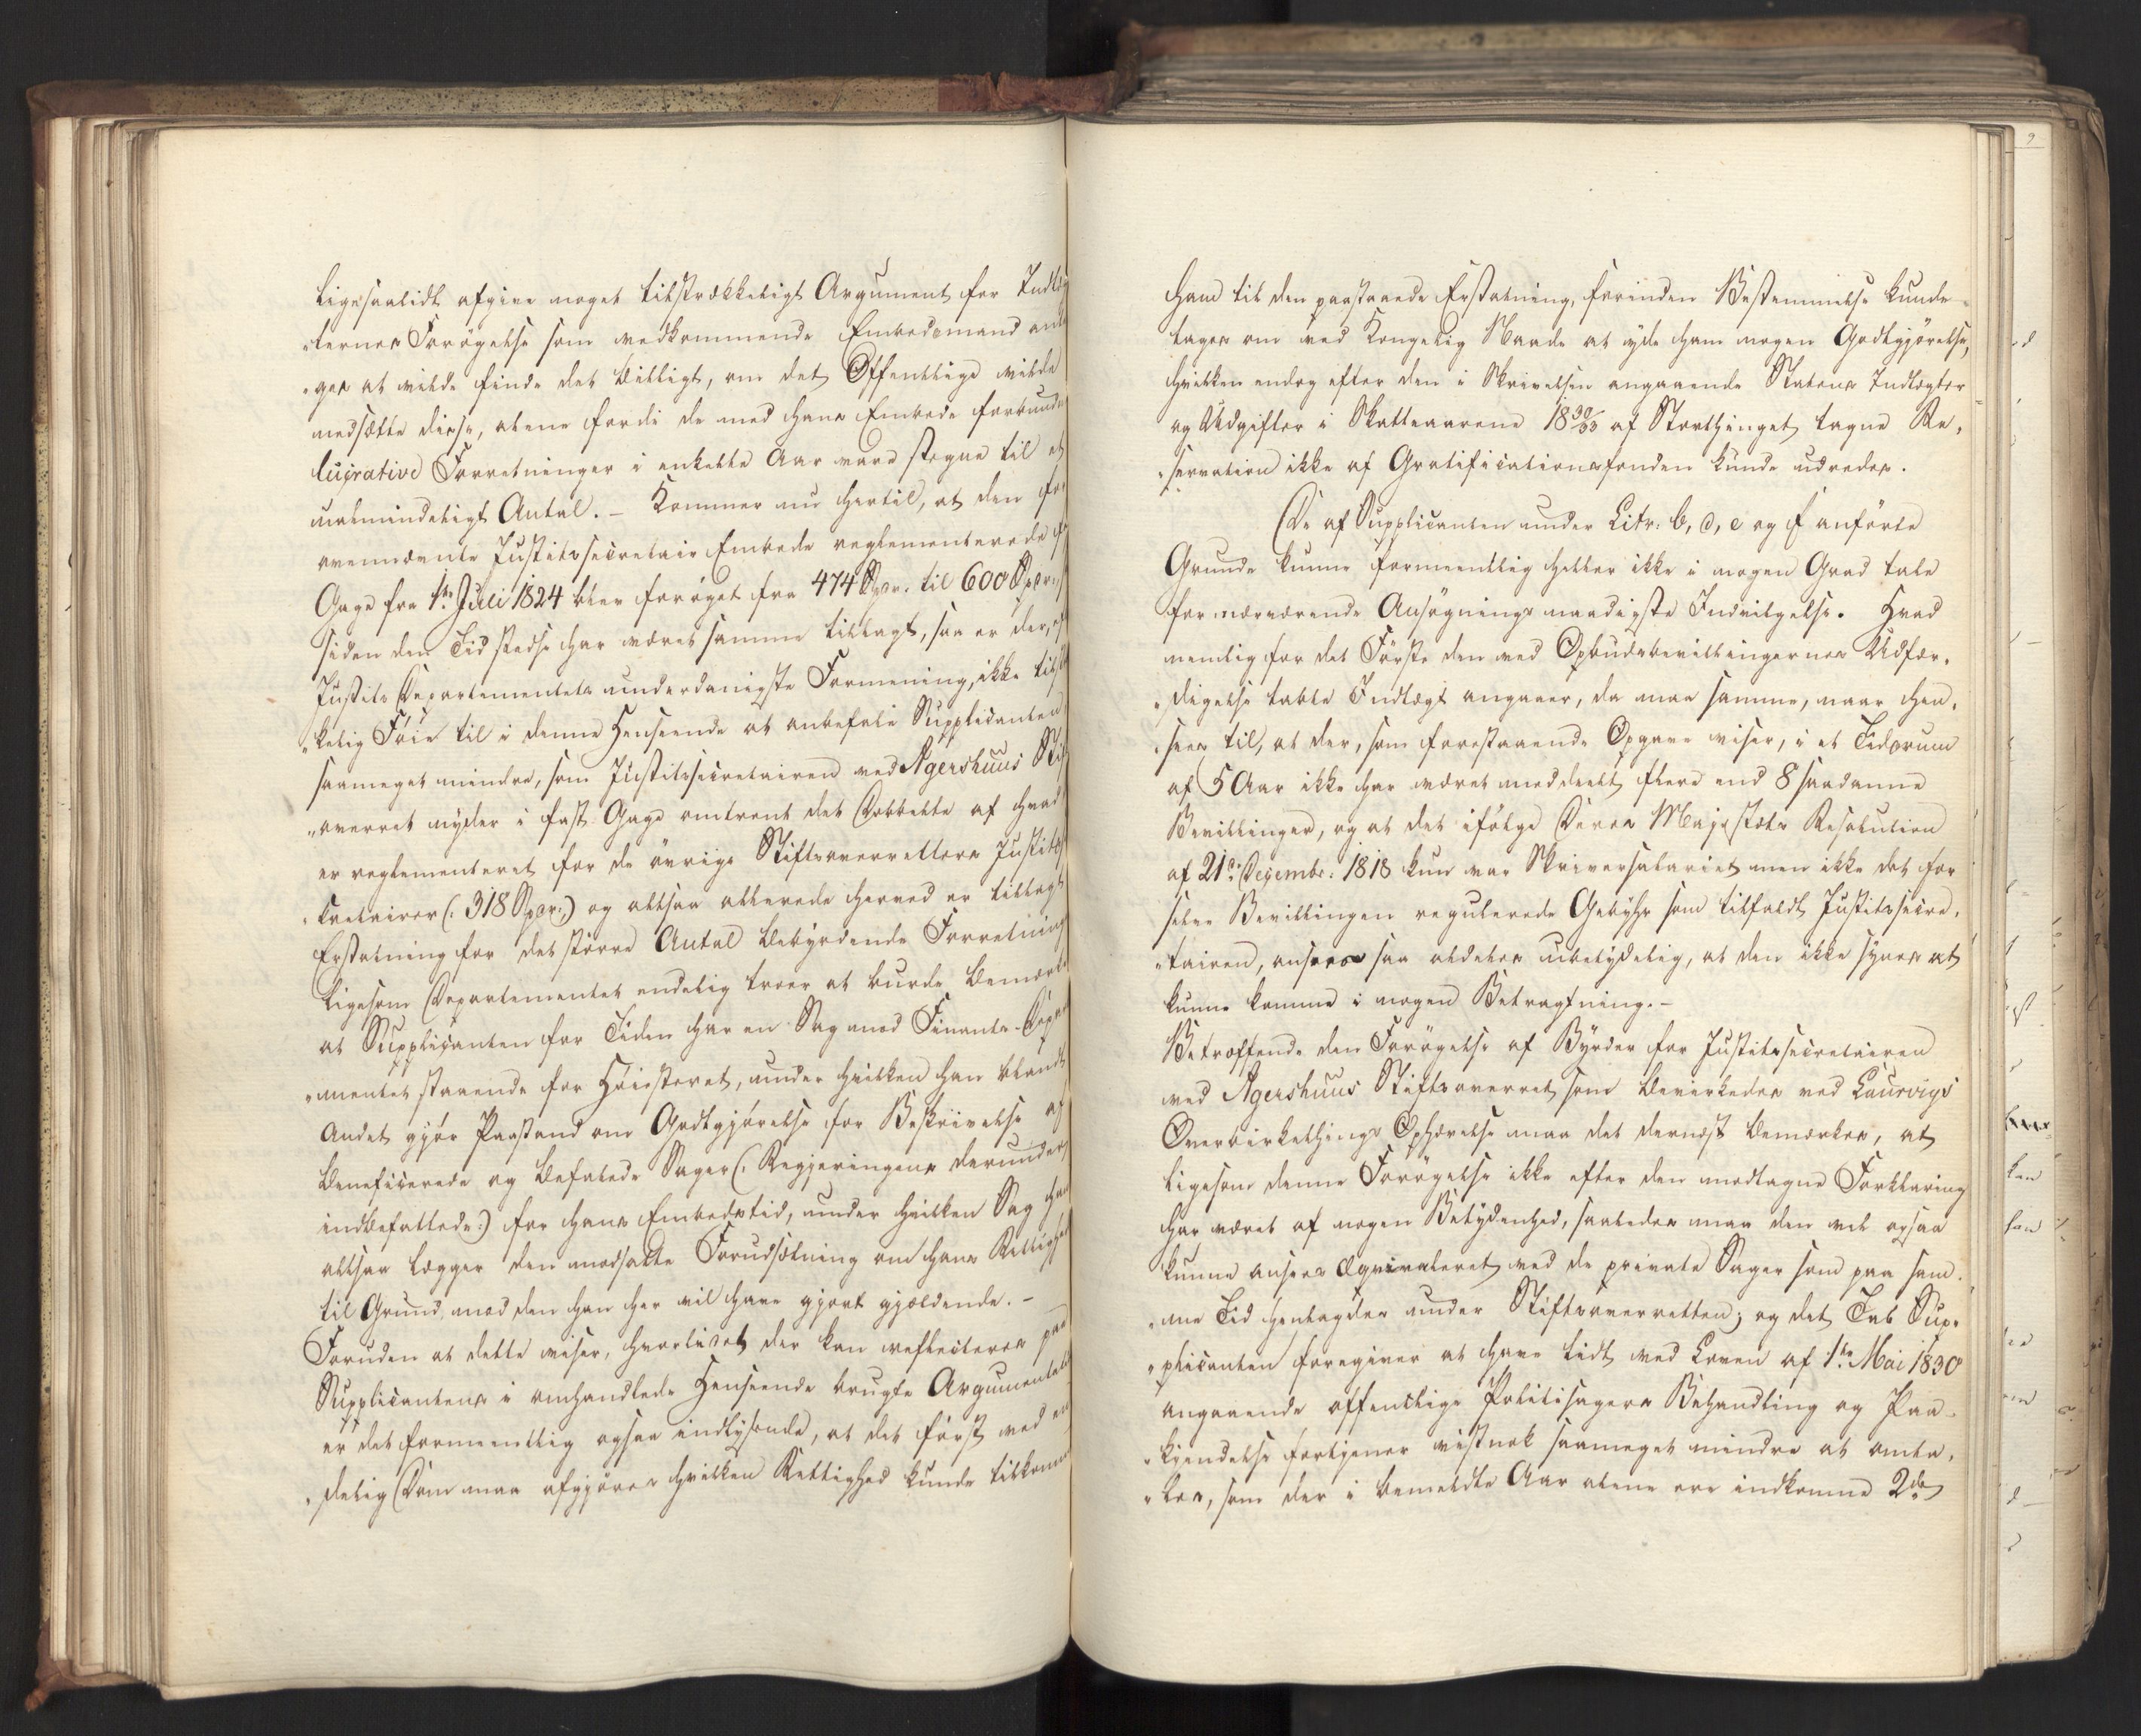 ligesaalidt afgive noget tilstrækkeligt Argument for Indtæg
„ternes Forøgelse som vedkommende Embedsmand anta
„ges at vilde finde det billigt, om det Offentlige vilde
nedsætte disse, alene fordi de med hans Embede forbundne
lucrative Forretninger i enkelte Aar vare stegne til et
ualmindeligt Antal. – Kommer nu hertil, at den for
ovennævnte Justitssecretair Embede reglementerede
Gage fra 1ste Juli 1824 blev forøget fra 474 Spdr. til 600 Spdr:,
siden den Tid stedse har været samme tillagt, saa er der, ef
Justits Departementets underdanigste Formening, ikke tilstræ
„kelig Føie til i denne Henseende at anbefale Supplicanten
saameget mindre, som Justitssecretairen ved Agershuus Stif
„overret nyder i fast Gage omtrent det Dobbelte af hvad
er reglementeret for de øvrige Stiftsoverretters Justitsse
„cretairer (: 318 Spdr:) og altsaa allerede herved er tillagt
Erstatning for det større Antal bebyrdende Forretning
Ligesom Departementet endelig troer at burde bemærke
at Supplicanten for Tiden har en Sag mod Finants-Depar
„mentet staaende for Høiesteret, under hvilken han blandt
Andet gjør Paastand om Godtgjørelse for Beskrivelse af
beneficerede og befalede Sager (: Regjeringens derunder
indbefattede:) for hans Embedstid, under hvilken Sag han
altsaa lægger den modsatte Forudsætning om hans Rettighed
til Grund, mod den han her vil have gjort gjældende. –
Foruden at dette viser, hvorlidet der kan reflecteres paa
Supplicantens i omhandlede Henseende brugte Argumenter
er det formeentlig ogsaa indlysende, at det først ved en
„delig Dom maa afgjøres hvilken Rettighed kunde tilkomme
ham til den paastaaede Erstatning, forinden Bestemmelse kunde
tages om ved Kongelig Naade at yde ham nogen Godtgjørelse,
hvilken endog efter den i Skrivelsen angaaende Statens Indtægter
og Udgifter i Skatteaarene 1830/33 af Storthinget tagne Re„
„servation ikke af Gratificationsfonden kunde udredes.
De af Supplicanten under Litr: b, d, e og f anførte
Grunde kunne formeentlig heller ikke i nogen Grad tale
for nærværende Ansøgnings naadigste Indvilgelse. Hvad
nemlig for det Første den ved Opbudsbevillingernes Udfær„
„digelse tabte Indtægt angaaer, da maa samme, naar hen„
„sees til, at der, som forestaaende Opgave viser, i et Tidsrum
af 5 Aar ikke har været meddeelt flere end 8 saadanne
Bevillinger, og at det ifølge Deres Majestæts Resolution
af 21de Decembr: 1818 kun var Skriversalariet men ikke det for
selve Bevillingen regulerede Gebyhr som tilfaldt Justitssecre„
„tairen, ansees saa aldeles ubetydelig, at den ikke synes at
kunne komme i nogen Betragtning. –
Betræffende den Forøgelse af Byrder for Justitssecretairen
ved Agershuus Stiftsoverret som bevirkedes ved Laurvigs
Overbirkethings Ophævelse maa det dernæst bemærkes, at
ligesom denne Forøgelse ikke efter den modtagne Forklaring
har været af nogen Betydenhed, saaledes maa den vel ogsaa
kunne ansees æqvivaleret ved de private Sager som paa sam„
„me Tid henlagdes under Stiftsoverretten; og det Tab Sup„
„plicanten foregiver at have lidt ved Loven af 1ste Mai 1830
angaaende offentlige Politisagers Behandling og Paa„
„kjendelse fortjener vistnok saameget mindre at omta„
„les, som der i bemeldte Aar alene ere indkomne 2de